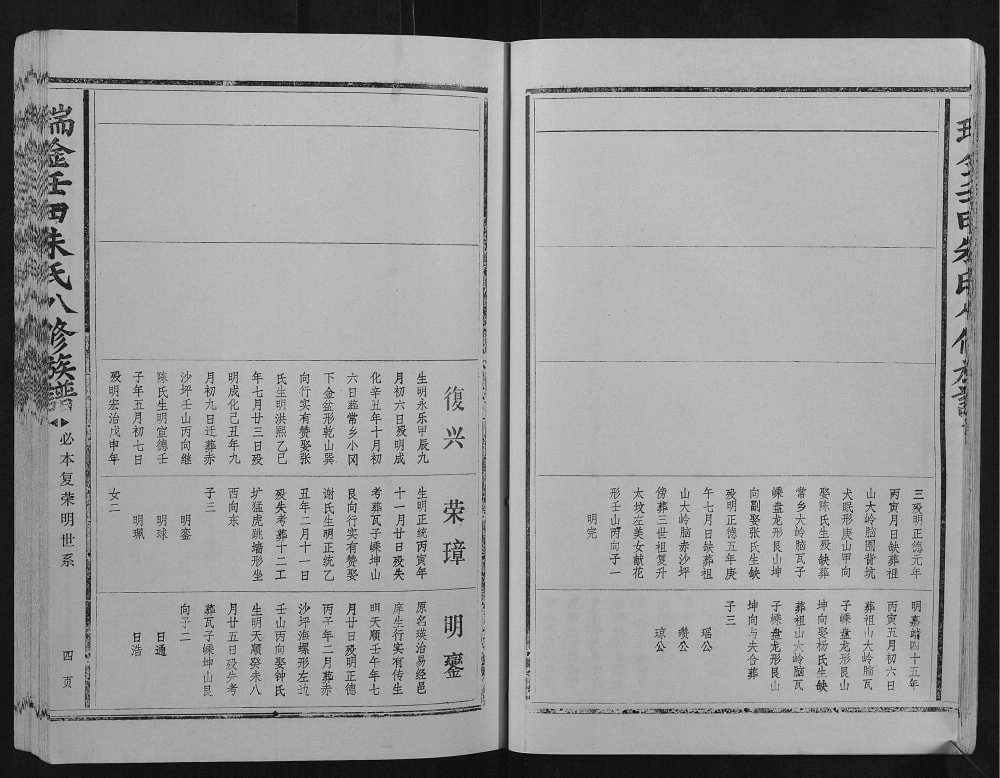 三殁明正德元年
丙寅月日缺葬祖
山大岭脑圈背坑
犬眠形庚山甲向
娶陈氏生殁缺葬
常乡大岭脑瓦子
嵊盘龙形艮山坤
向副娶张氏生缺
殁明正德五年庚
午七月日缺葬祖
山大岭脑赤沙坪
傍葬三世祖复升
太坟左美女献花
形壬山丙向子一
明完
明嘉靖四十五年
丙寅五月初六日
葬祖山大岭脑瓦
子嵊盘龙形艮山
坤向娶杨氏生缺
葬祖山大岭脑瓦
子嵊盘龙形艮山
坤向与夫合葬
子三
瑶公
瓒公
琼公
復兴
生明永乐甲辰九
月初六日殁明成
化辛丑年十月初
六日葬常乡小冈
下金盆形乾山巽
向行实有赞娶张
氏生明洪熙乙巳
年七月廿三日殁
明成化己丑年九
月初九日迁葬赤
沙坪壬山丙向继
陈氏生明宣德壬
子年五月初七日
殁明宏治戊申年
荣璋
生明正统丙寅年
十一月廿日殁失
考葬瓦子嵊坤山
艮向行实有赞娶
谢氏生明正统乙
丑年二月十一日
殁失考葬十二工
圹猛虎跳墙形坐
西向东
子三
明銮
明球
明珮
女二
明銮
原名瑛治易经邑
庠生行实有传生
明天顺壬午年七
月廿日殁明正德
丙子年二月葬赤
沙坪海螺形左边
壬山丙向娶钟氏
生明天顺癸未八
月廿五日殁失考
葬瓦子嵊坤山艮
向子二
日通
日浩
瑞金壬田朱氏八修族谱
必本复荣明世系
四页